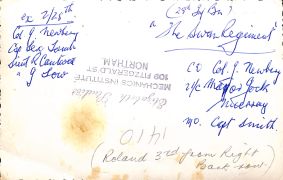 ex 2/28th
Col J. Newbery
Cap Rex Lamb
Lieut R.
" J Low
(28th Bn)
"The Swan Regiment"
CO Col J. Newbery
2/c Major Jock
Murray
MO. Capt Smith.
MECHANICS INSTITUTE
109 FITZGERALD ST
NORTHAM
1410
(Roland 3rd from Right
Back row.)